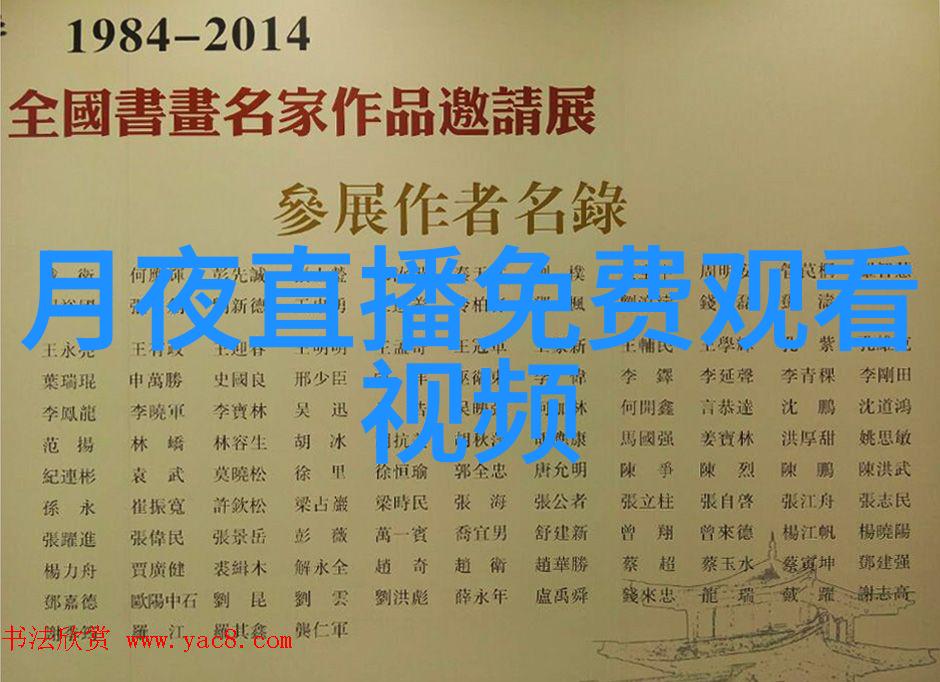 1984-2014
全國書畫名家作品邀請展
參展作者名錄
月夜直播免费观看
视频
衛 何應輝 彭先誠 樸 周明安
新德 楓 錢
王永亮 王有政 王迎春 王明明 王孟奇 王冠軍 王家新 王輔民 王學輝 孔 紫
葉瑞琨 申萬勝 史國良 邢少臣 李 鐸 李延聲 李青稞 李剛田
李鳳龍 李曉軍 李寶林 吳 迅 何開鑫 言恭達 沈 鵬 沈道鴻
范 揚 林 嶠 林容生 胡 冰 馬國强 姜寶林 洪厚甜 姚思敏
紀連彬 袁 武 莫曉松 徐 里 徐恒瑜 郭全忠 唐允明 陳 爭 陳 烈 陳 鵬 陳洪武
孫 永 崔振寬 許欽松 梁占巖 梁時民 張 海 張公者 張立柱 張自啓 張江舟 張志民
張躍進 張偉民 張景岳 彭 薇 萬一賓 喬宜男 舒建新 曾 翔 曾來德 楊江帆 楊曉陽
楊力舟 賈廣健 裘緝木 解永全 趙 奇 趙 衛 趙華勝 蔡 超 蔡玉水 蔡寅坤 鄧建强
鄧嘉德 歐陽中石 劉 昆 劉 雲 劉洪彪 薛永年 盧禹舜 錢來忠 龍 瑞 戴 躍 謝志高
羅 江 羅其鑫 龔仁軍
书法欣赏 www.yac8.com